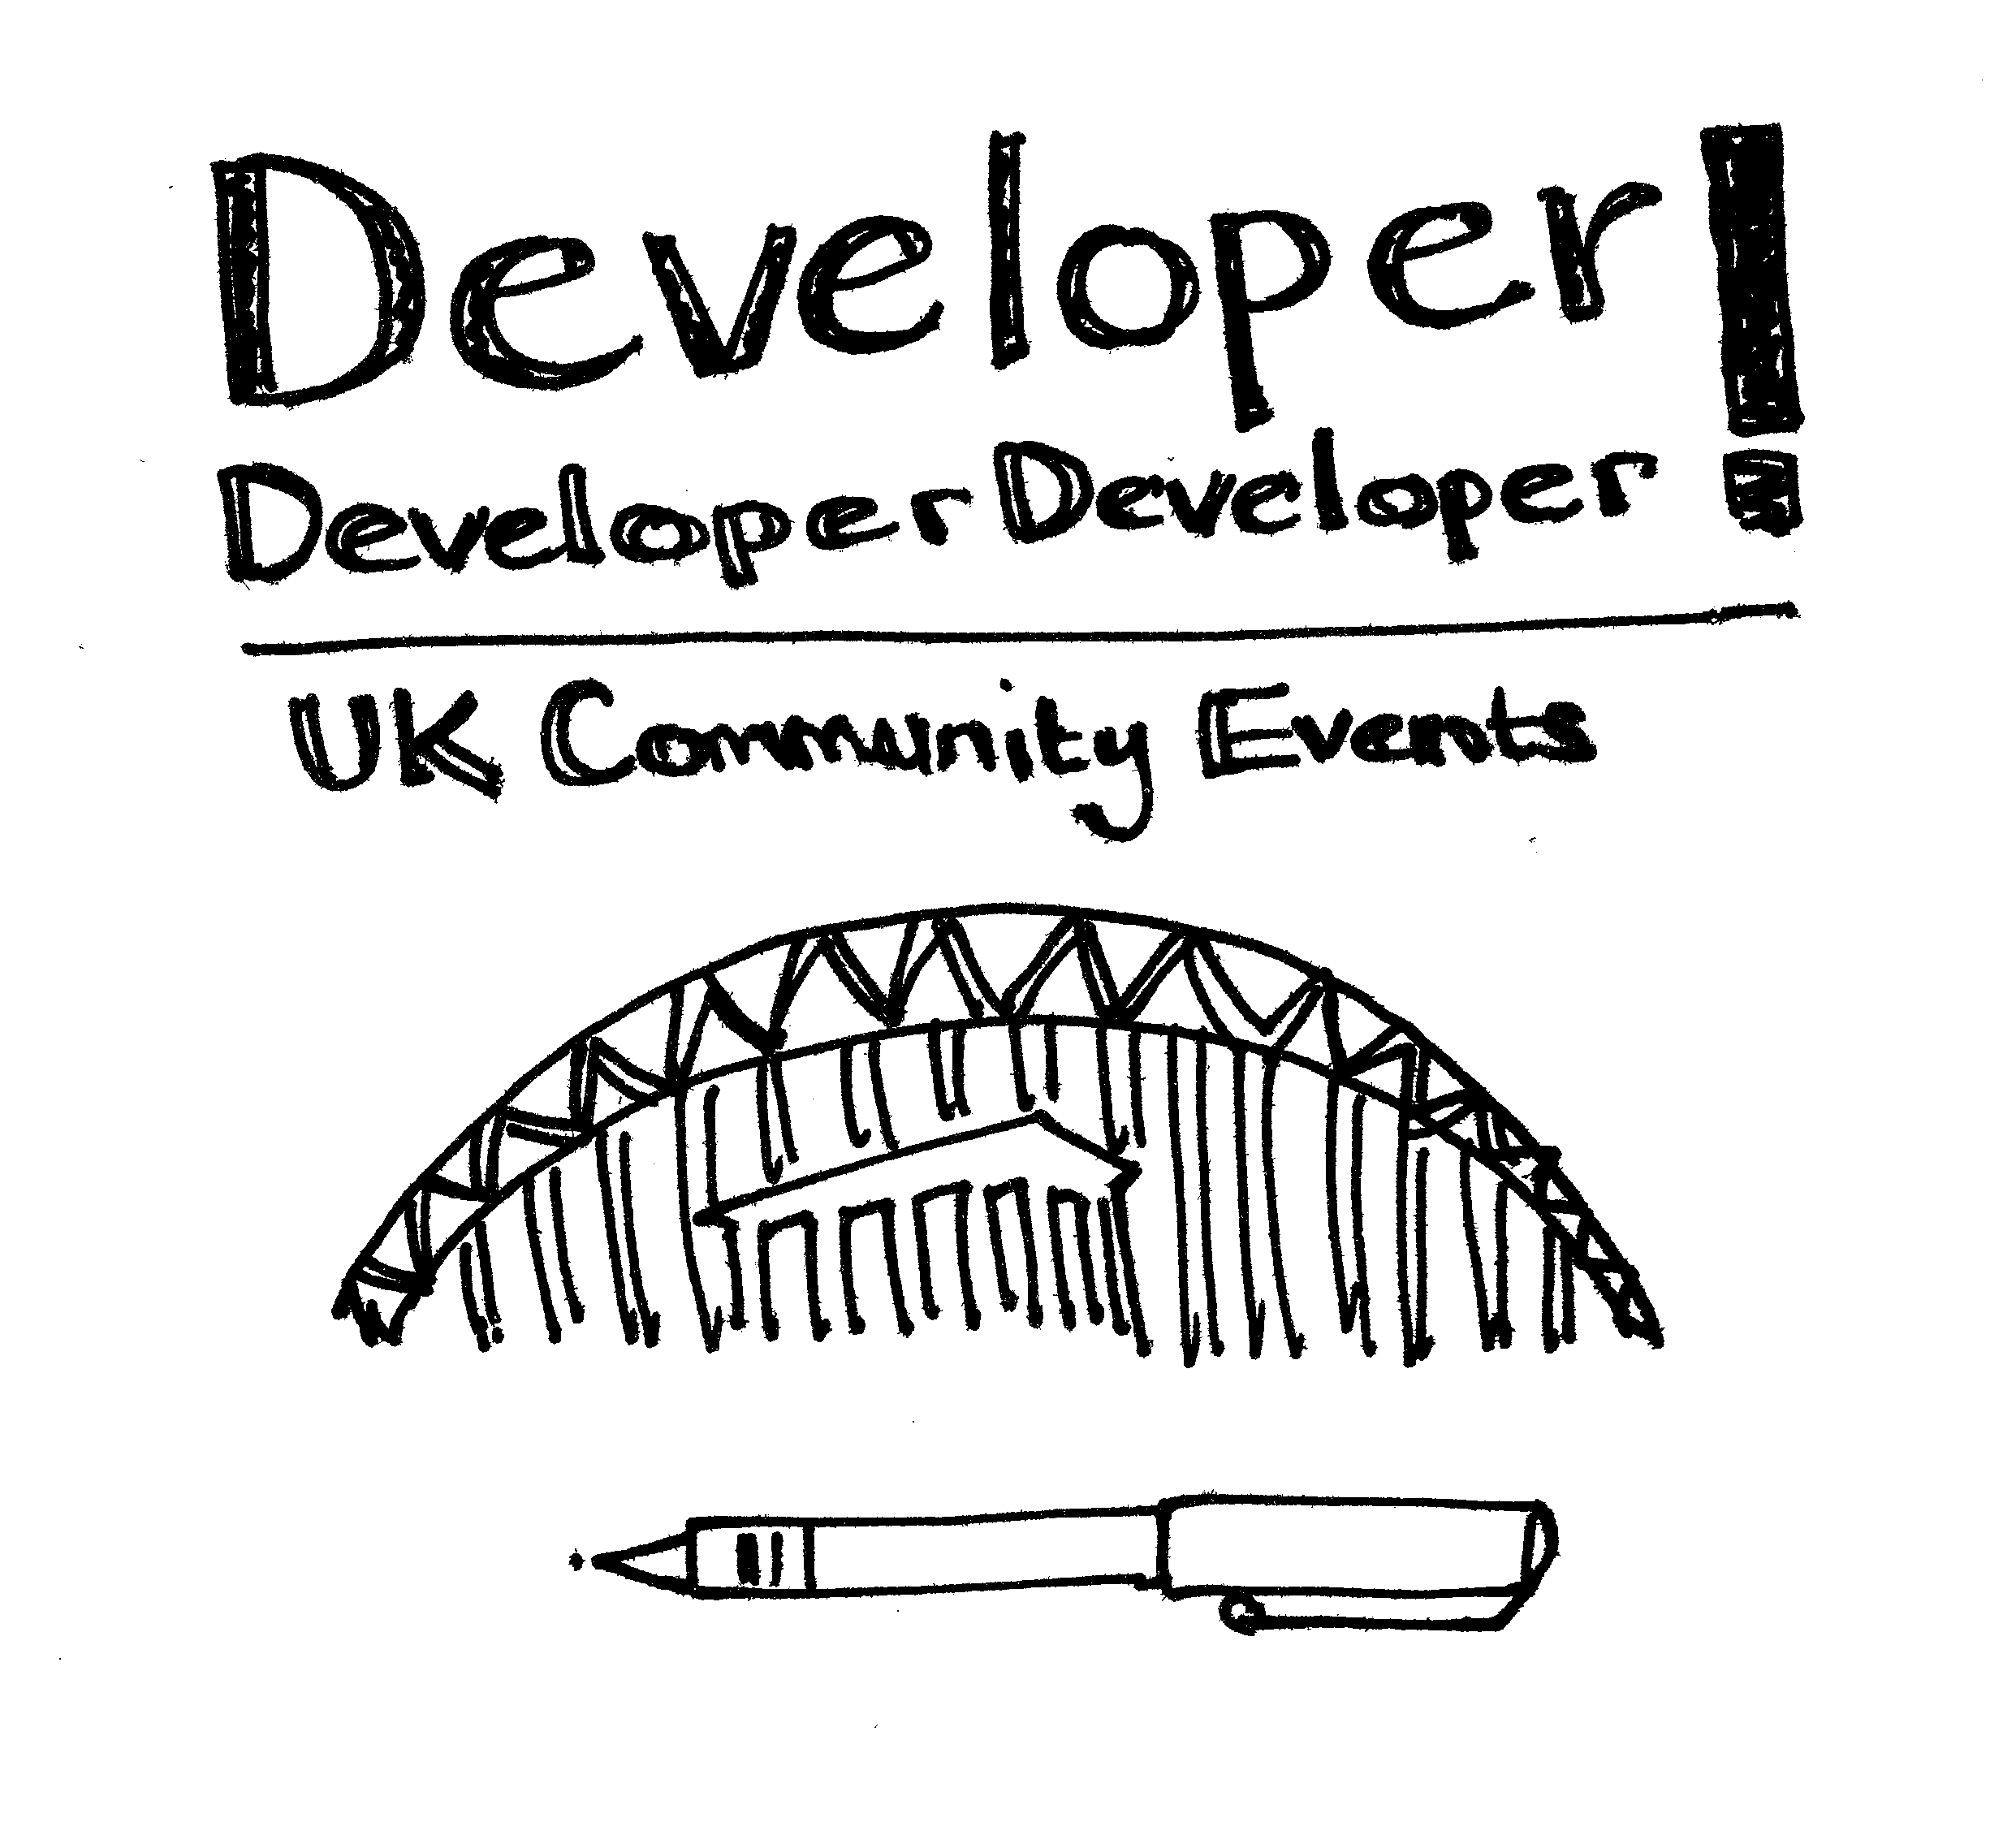 Developer!
Developer Developer
UK Community Events